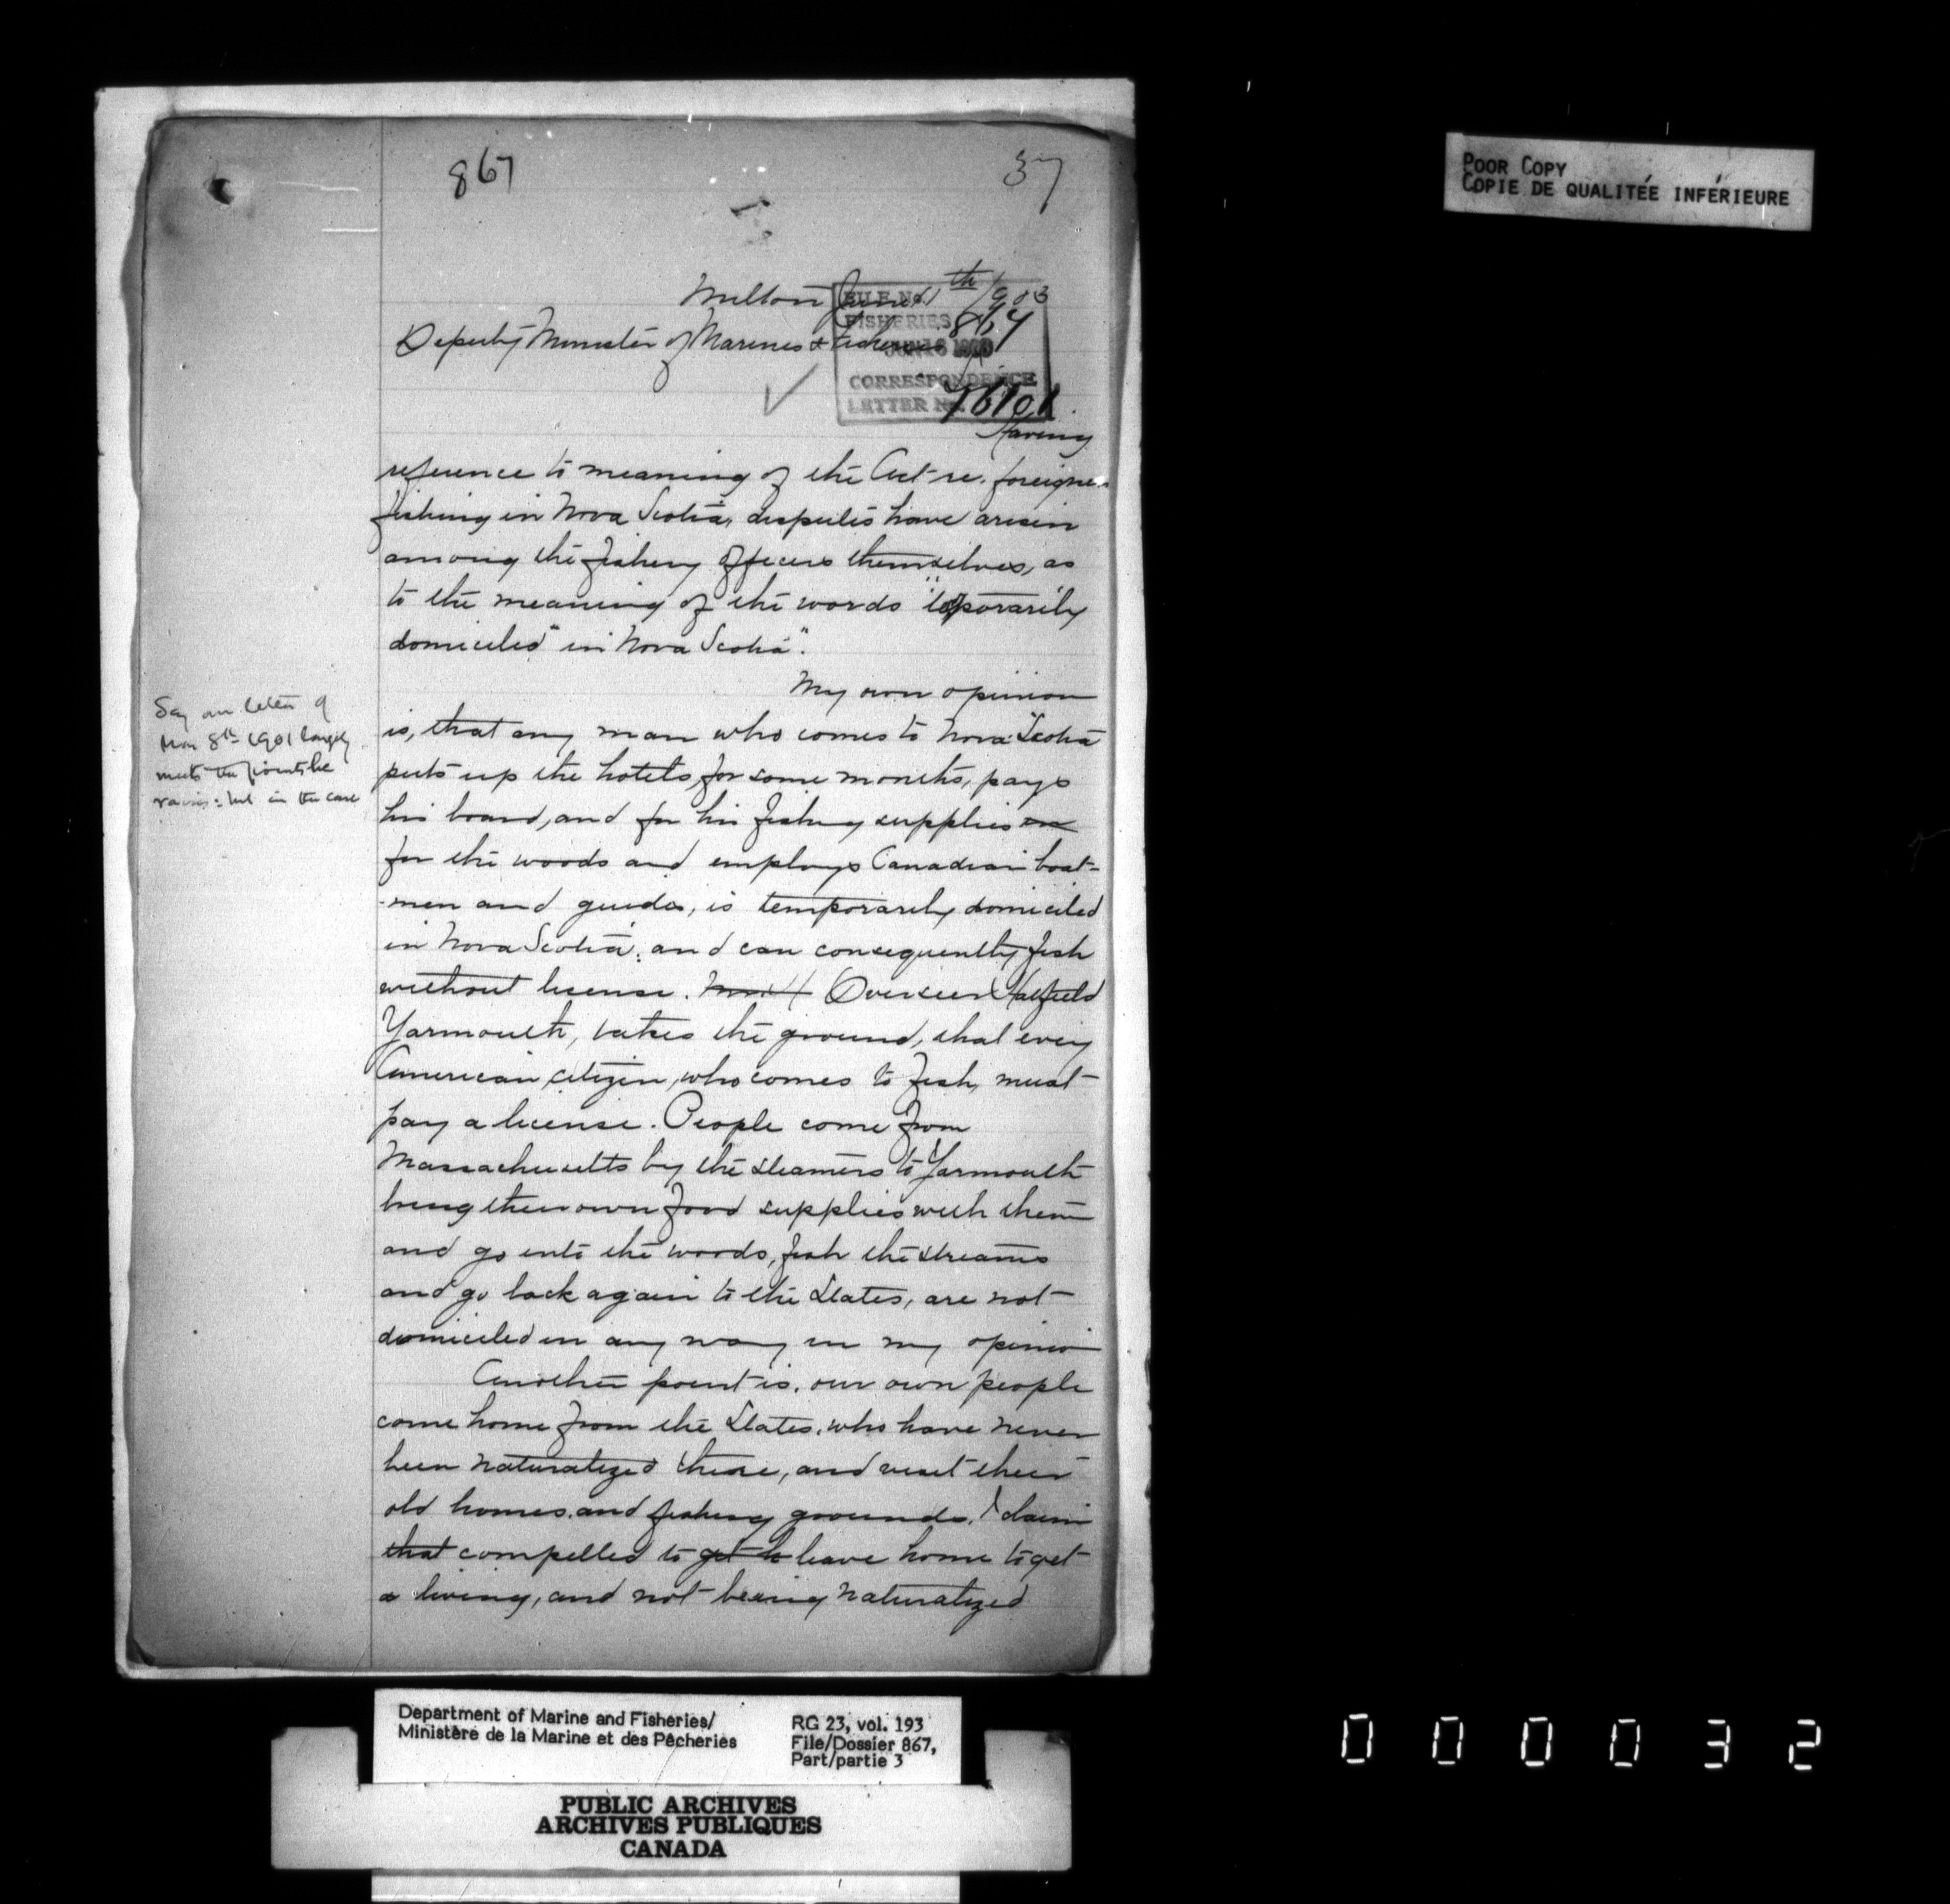 867
37
POOR COPY
COPIE DE QUALITÉE INFÉRIEURE
Milton June 11th 1903
FILE No.
FISHERIES 867
JUN 16 1903
CORRESPONDENCE
LETTER No. 76101
Deputy Minister of Marines & Fisheries
Having
reference to meaning of the Act re. foreigners
fishing in Nova Scotia, disputes have arisen
among the fishery officers themselves, as
to the meaning of the words "temporarily
domiciled" in Nova Scotia".
My own opinion
is, that any man who comes to Nova Scotia
puts up the hotels, for some months, pays
his board, and for his fishing supplies
for the woods and employs Canadian boat-
-men and guides, is temporarily domiciled
in Nova Scotia; and can consequently fish
without license. Overseer Hatfield
Yarmouth, takes the ground, that every
American citizen, who comes to fish, must
pay a license. People come from
Massachusetts by the steamers to Yarmouth
bring their own food supplies with them
and go into the woods, fish the streams
and go back again to the States, are not
domiciled in any way in my opinion
Another point is, our own people
come home from the States, who have never
been naturalized there, and visit their
old homes and fishing grounds. I claim
that compelled to get to leave home to get
a living, and not being naturalized
Say our letter of
Nov 8th 1901 largely
meets the points he
raises: but in the case
Department of Marine and Fisheries/
Ministère de la Marine et des Pêcheries
RG 23, vol. 193
File/Dossier 867,
Part/partie 3
PUBLIC ARCHIVES
ARCHIVES PUBLIQUES
CANADA
000032